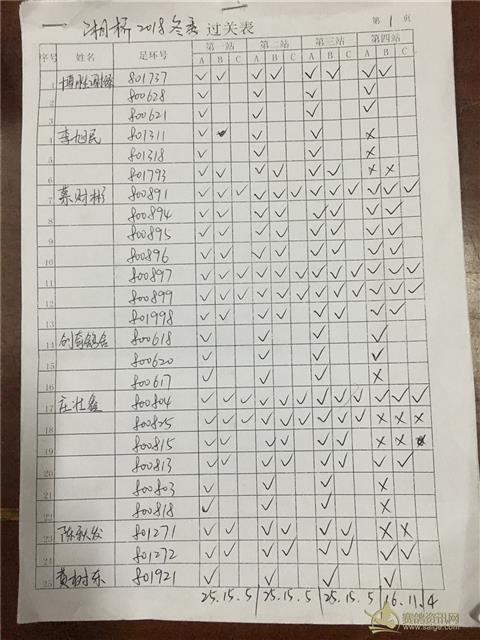 2018冬季 过关表 第1页
序号 姓名 足环号 第一站 第二站 第三站 第四站
A B C A B C A B C A B C
1 801737 ✓ ✓ ✓ ✓ ✓ ✓ ✓ ✓
2 800628 ✓ ✓ ✓ ✓
3 800621 ✓ ✓ ✓ ✓
4 李旭民 801311 ✓ ✓ ✓ ✓ ×
5 801318 ✓ ✓ ✓ ×
6 801793 ✓ ✓ ✓ ✓ ✓ ✓ × ×
7 蔡财彬 800891 ✓ ✓ ✓ ✓ ✓ ✓ ✓ ✓ ✓ ✓ ✓ ✓
8 800894 ✓ ✓ ✓ ✓ ✓ ✓ ✓ ✓
9 800895 ✓ ✓ ✓ ✓ ✓ ✓ ✓ ✓
10 800896 ✓ ✓ ✓ ✓ ✓ ✓ ✓ ✓
11 800897 ✓ ✓ ✓ ✓ ✓ ✓ ✓ ✓ ✓ ✓ ✓ ✓
12 800899 ✓ ✓ ✓ ✓ ✓ ✓ ✓ ✓ ✓ ✓ ✓ ✓
13 801998 ✓ ✓ ✓ ✓ ✓ ✓ ✓ ✓
14 800618 ✓ ✓ ✓ ✓
15 800620 ✓ ✓ ✓ ✓
16 800617 ✓ ✓ ✓ ×
17 800804 ✓ ✓ ✓ ✓ ✓ ✓ ✓ ✓ ✓ ✓ ✓ ✓
18 800825 ✓ ✓ ✓ ✓ ✓ ✓ ✓ ✓ ✓ × × ×
19 800815 ✓ ✓ ✓ ✓ ✓ ✓ × × ×
20 800813 ✓ ✓ ✓ ✓ ✓ ✓ ✓ ✓
21 800803 ✓ ✓ ✓ ×
22 800818 ✓ ✓ ✓ ×
23 陈秋发 801271 ✓ ✓ ✓ ✓ ✓ ✓ × ×
24 801272 ✓ ✓ ✓ ✓ ✓ ✓ ✓ ✓
25 黄树东 801921 ✓ ✓ ✓ ✓
25.15.5 25.15.5 25.15.5 16.11.4
赛鸽资讯网
www.saige.com